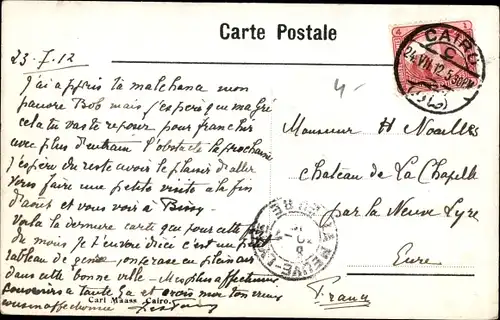 Carte Postale
23-7.12
J'ai appris ta malchance mon
pauvre Bob mais j'espère que malgré
cela tu vas te reposer pour franchir
avec plus d'entrain l'obstacle la prochaine
J'espère du reste avoir le plaisir d'aller
Vous faire une petite visite à la fin
d'août et vous voir à Bissy
Voilà la dernière carte que pour cette fois
du mois je t'envoie d'ici c'est un petit
tableau de genre, on en rase en plein air
dans cette bonne ville - Mes plus affectueux
souvenirs à toute la et crois moi ton vieux
cousin affectionné
Carl Maass Cairo.
4
4
CAIRO
C
24 VII 12 5.30PM
Monsieur H Noailles
Chateau de La Chapelle
par la Neuve Lyre
Eure
France
LA NEUVE-LYRE
EURE